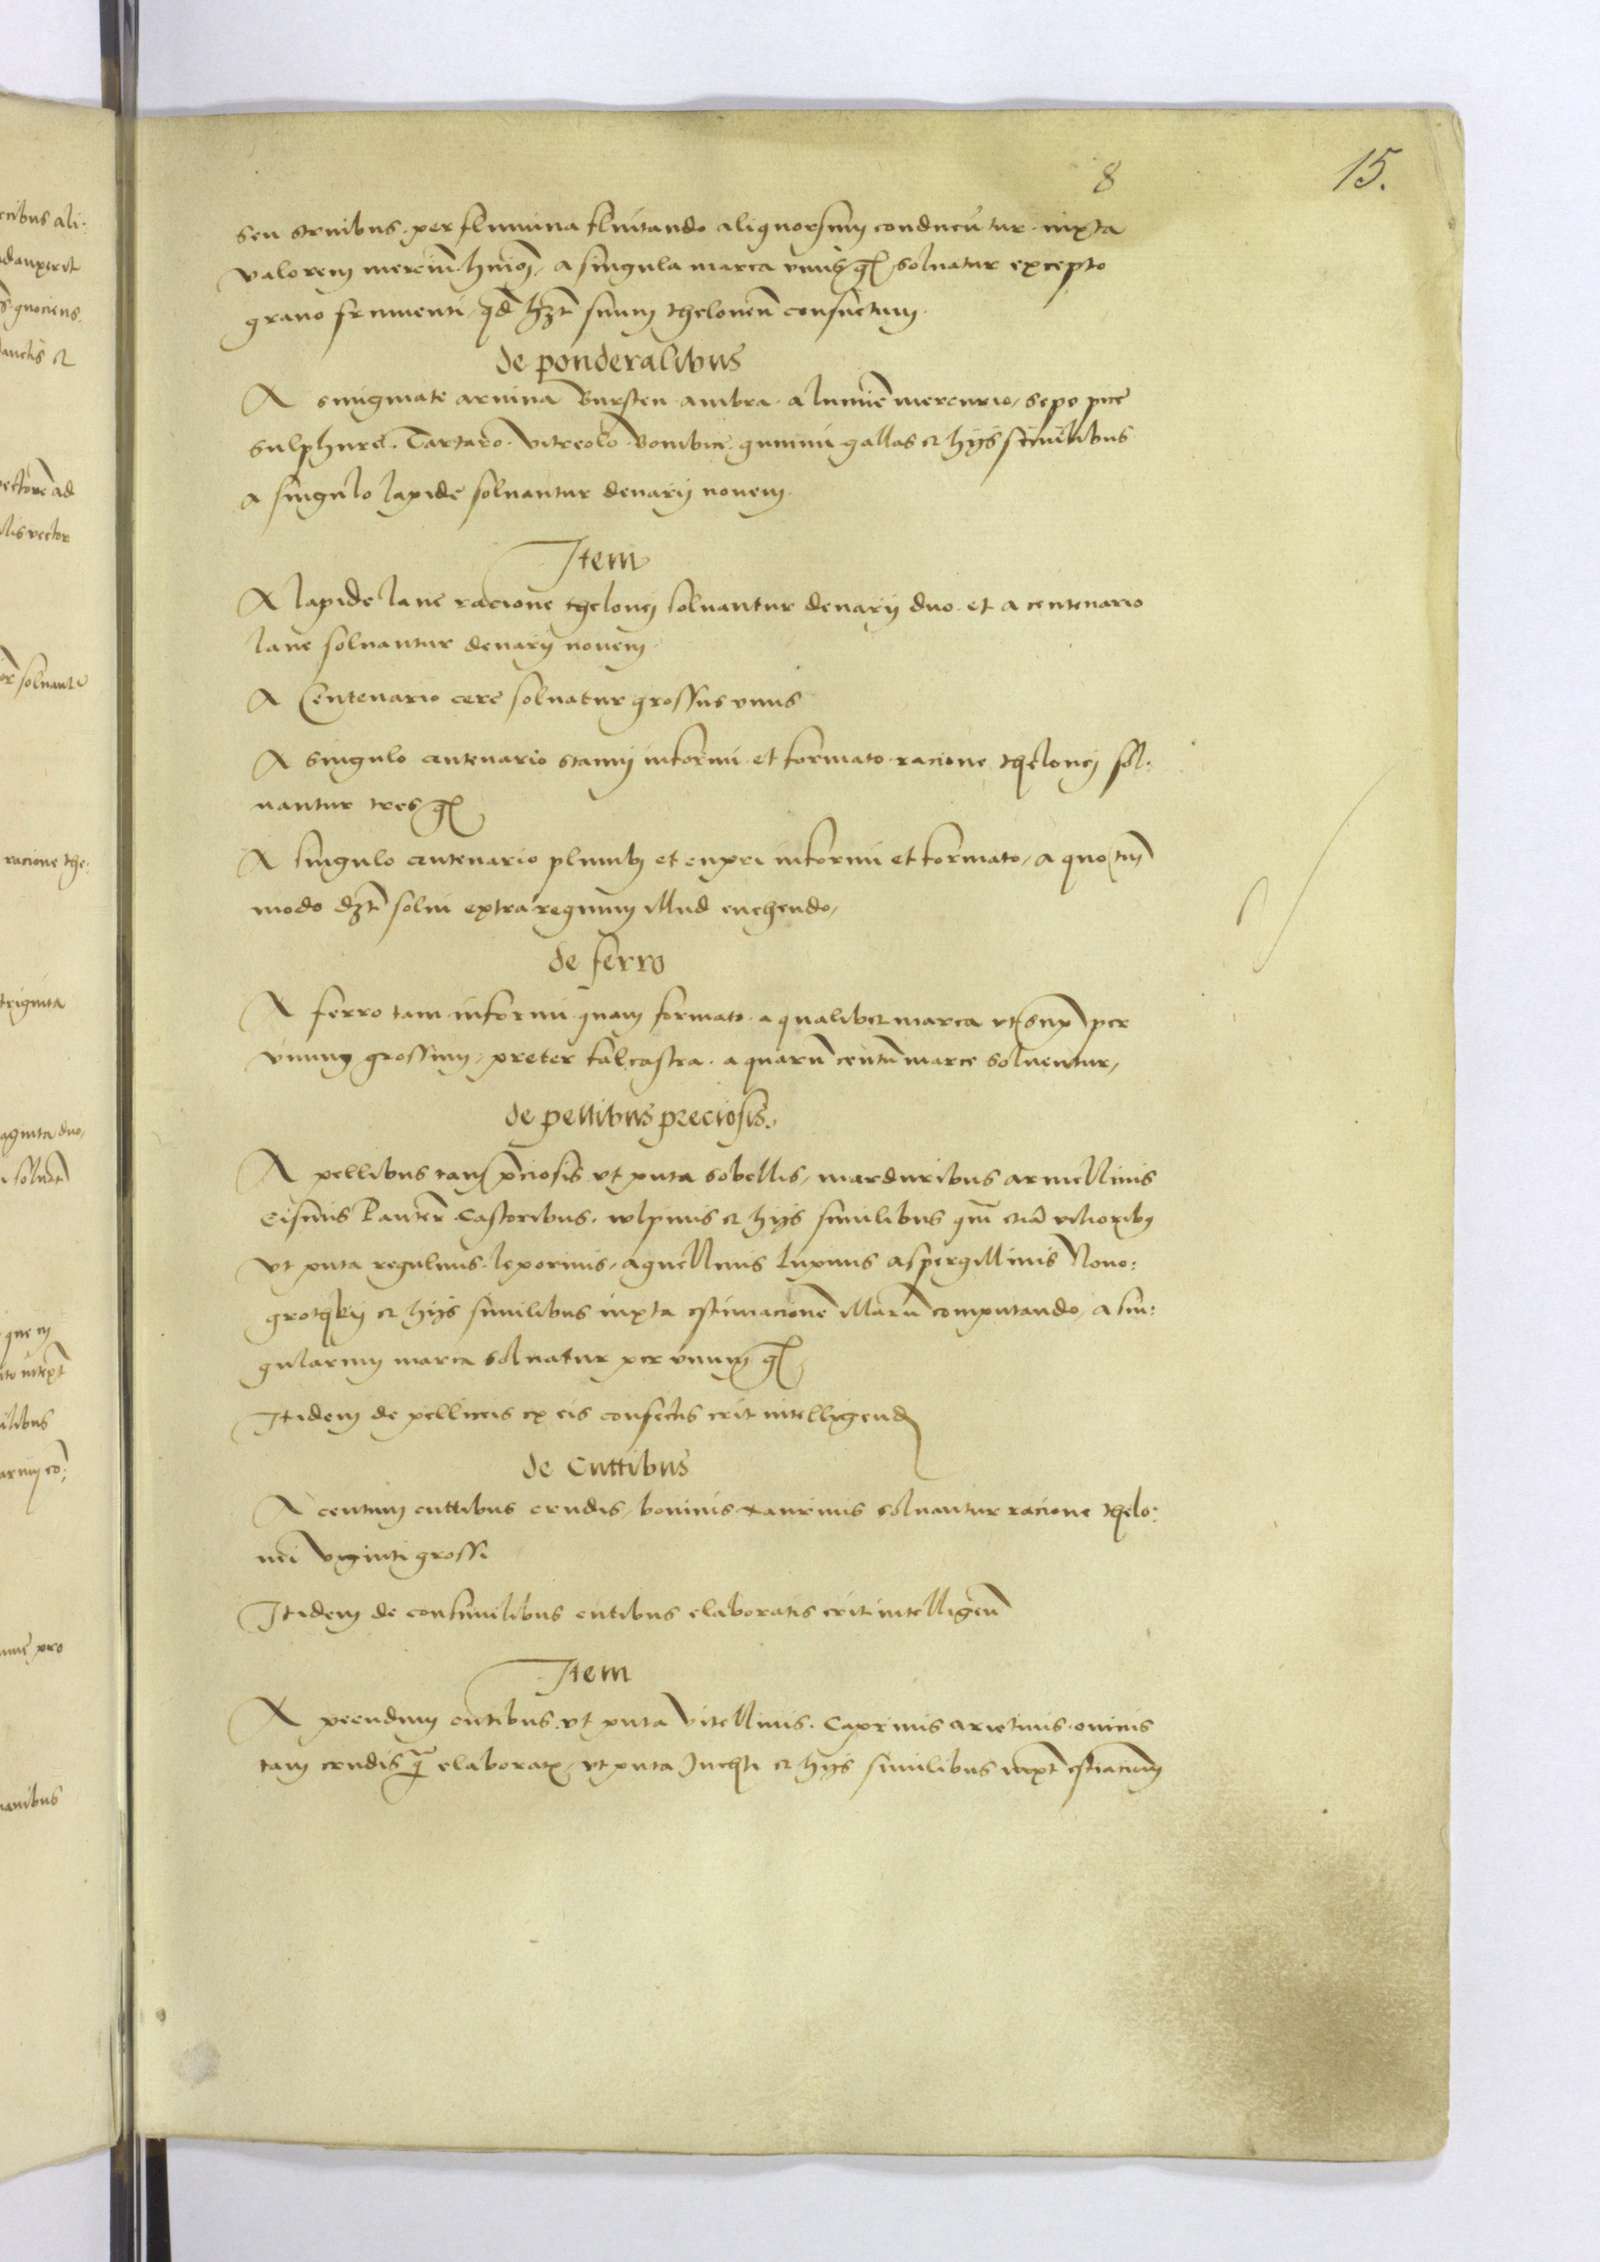 8
15.
seu struibus per flumina fluitando aliquorsum conducūtur iuxta
valorem merciū huiōi, a singula marca unus gl soluatur excepto
grano frumenti, qd hzt suum theloneū consuetum.
de ponderalibus
A smigmate aruina Bursten ambra alumie mercurio, sepo pice
sulphure. Tartaro. vitreolo. Bombice gummi gallas et hijs similibus
a singulo lapide soluantur denarij nouem.
Item
A lapide lane racione thelonei soluantur denarij duo. et a centenario
lane soluantur denarij nouem.
A Centenario cere soluatur grossus vnus
A singulo centenario stanni informi et formato racione thelonei sol:
uantur tres gl
A singulo centenario plumbi et cupri informi et formato, a quo tm
modo dzt solui extra regnum illud euehendo,
de ferro
A ferro tam informi quam formato a qualibet marca vt supra per
vnum grossum, preter falcastra. a quarū centū marce soluentur,
de pellibus preciosis.
A pellibus tam pciosis vt puta sobellis, marduribus armellinis
Lanter Castoribus. wlpinis et hijs similibus qm etiā vilioribus
vt puta regulinis. leporinis, agnellinis lupinis aspergillinis Nouo:
grotzky et hijs similibus iuxta estimacionē illarū computando, a sin:
gularum marca soluatur per vnum gl
Itidem de pelliceis ex eis confectis erit intelligend
de Cuttibus
A centum cuttibus crudis, bouinis taurinis soluantur racione thelo:
nei viginti grossi
Itidem de consimilibus cutibus elaboratis erit intelligen
Item
A pecudum cutibus. vt puta vitellinis. Caprinis arietinis. ouinis
tam crudis q elaborat, vt puta Juchti et hijs similibus iuxt estiacionem